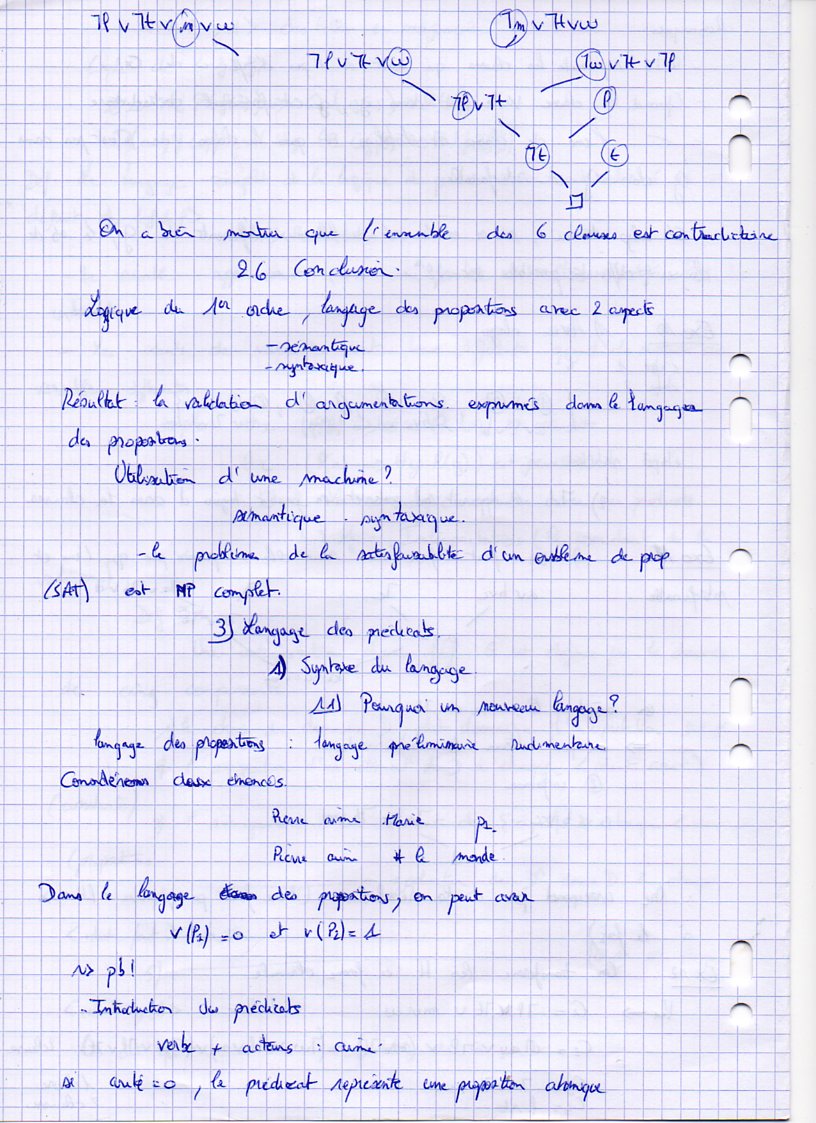 ⌉p ∨ ⌉t ∨ m ∨ ω ⌉m ∨ ⌉t ∨ ω
⌉p ∨ ⌉t ∨ ω ⌉ω ∨ ⌉t ∨ ⌉p
⌉p ∨ ⌉t p
⌉t t
□
On a bien montrer que l'ensemble des 6 clauses est contradictoire
2.6 Conclusion.
Logique du 1er ordre, langage des propositions avec 2 aspects
- sémantique
- syntaxique.
Résultat : la validation d'argumentations exprimés dans le langage
des propositions.
Utilisation d'une machine ?
sémantique. syntaxique.
- le problème de la satisfaisabilité d'un ensemble de prop
(SAT) est NP complet.
3) Langage des prédicats.
1) Syntaxe du langage
1.1) Pourquoi un nouveau langage ?
langage des propositions : langage préliminaire rudimentaire
Considérons deux énoncés.
Pierre aime Marie p1.
Pierre aime * le monde.
Dans le langage des propositions, on peut avoir
v(P1) = 0 et v(P2) = 1
~> pb !
- Introduction des prédicats
verbe + acteurs : aime.
si arité = 0, le prédicat représente une proposition atomique